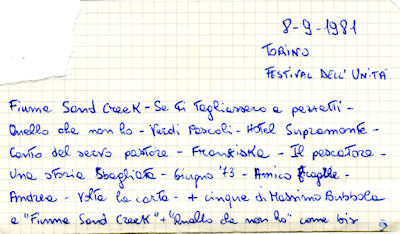 8-9-1981
TORINO
FESTIVAL DELL'UNITÀ
Fiume Sand Creek - Se ti tagliassero a pezzetti -
Quello che non ho - Verdi Pascoli - Hotel Supramonte -
Canto del servo pastore - Franziska - Il pescatore -
Una storia Sbagliata - Giugno '73 - Amico fragile -
Andrea - Volta la carta - + cinque di Massimo Bubbola
e "Fiume Sand Creek" + "Quello che non ho" come bis